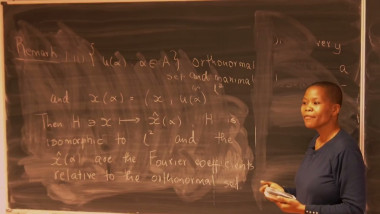 Remark: (i) { u(α), α ∈ A } orthonormal
set and maximal
in l²
and x̂(α) = (x, u(α)
Then H ∋ x ⟼ x̂(α), H is
isomorphic to l² and the
x̂(α) are the Fourier coefficients
relative to the orthonormal set
every
a